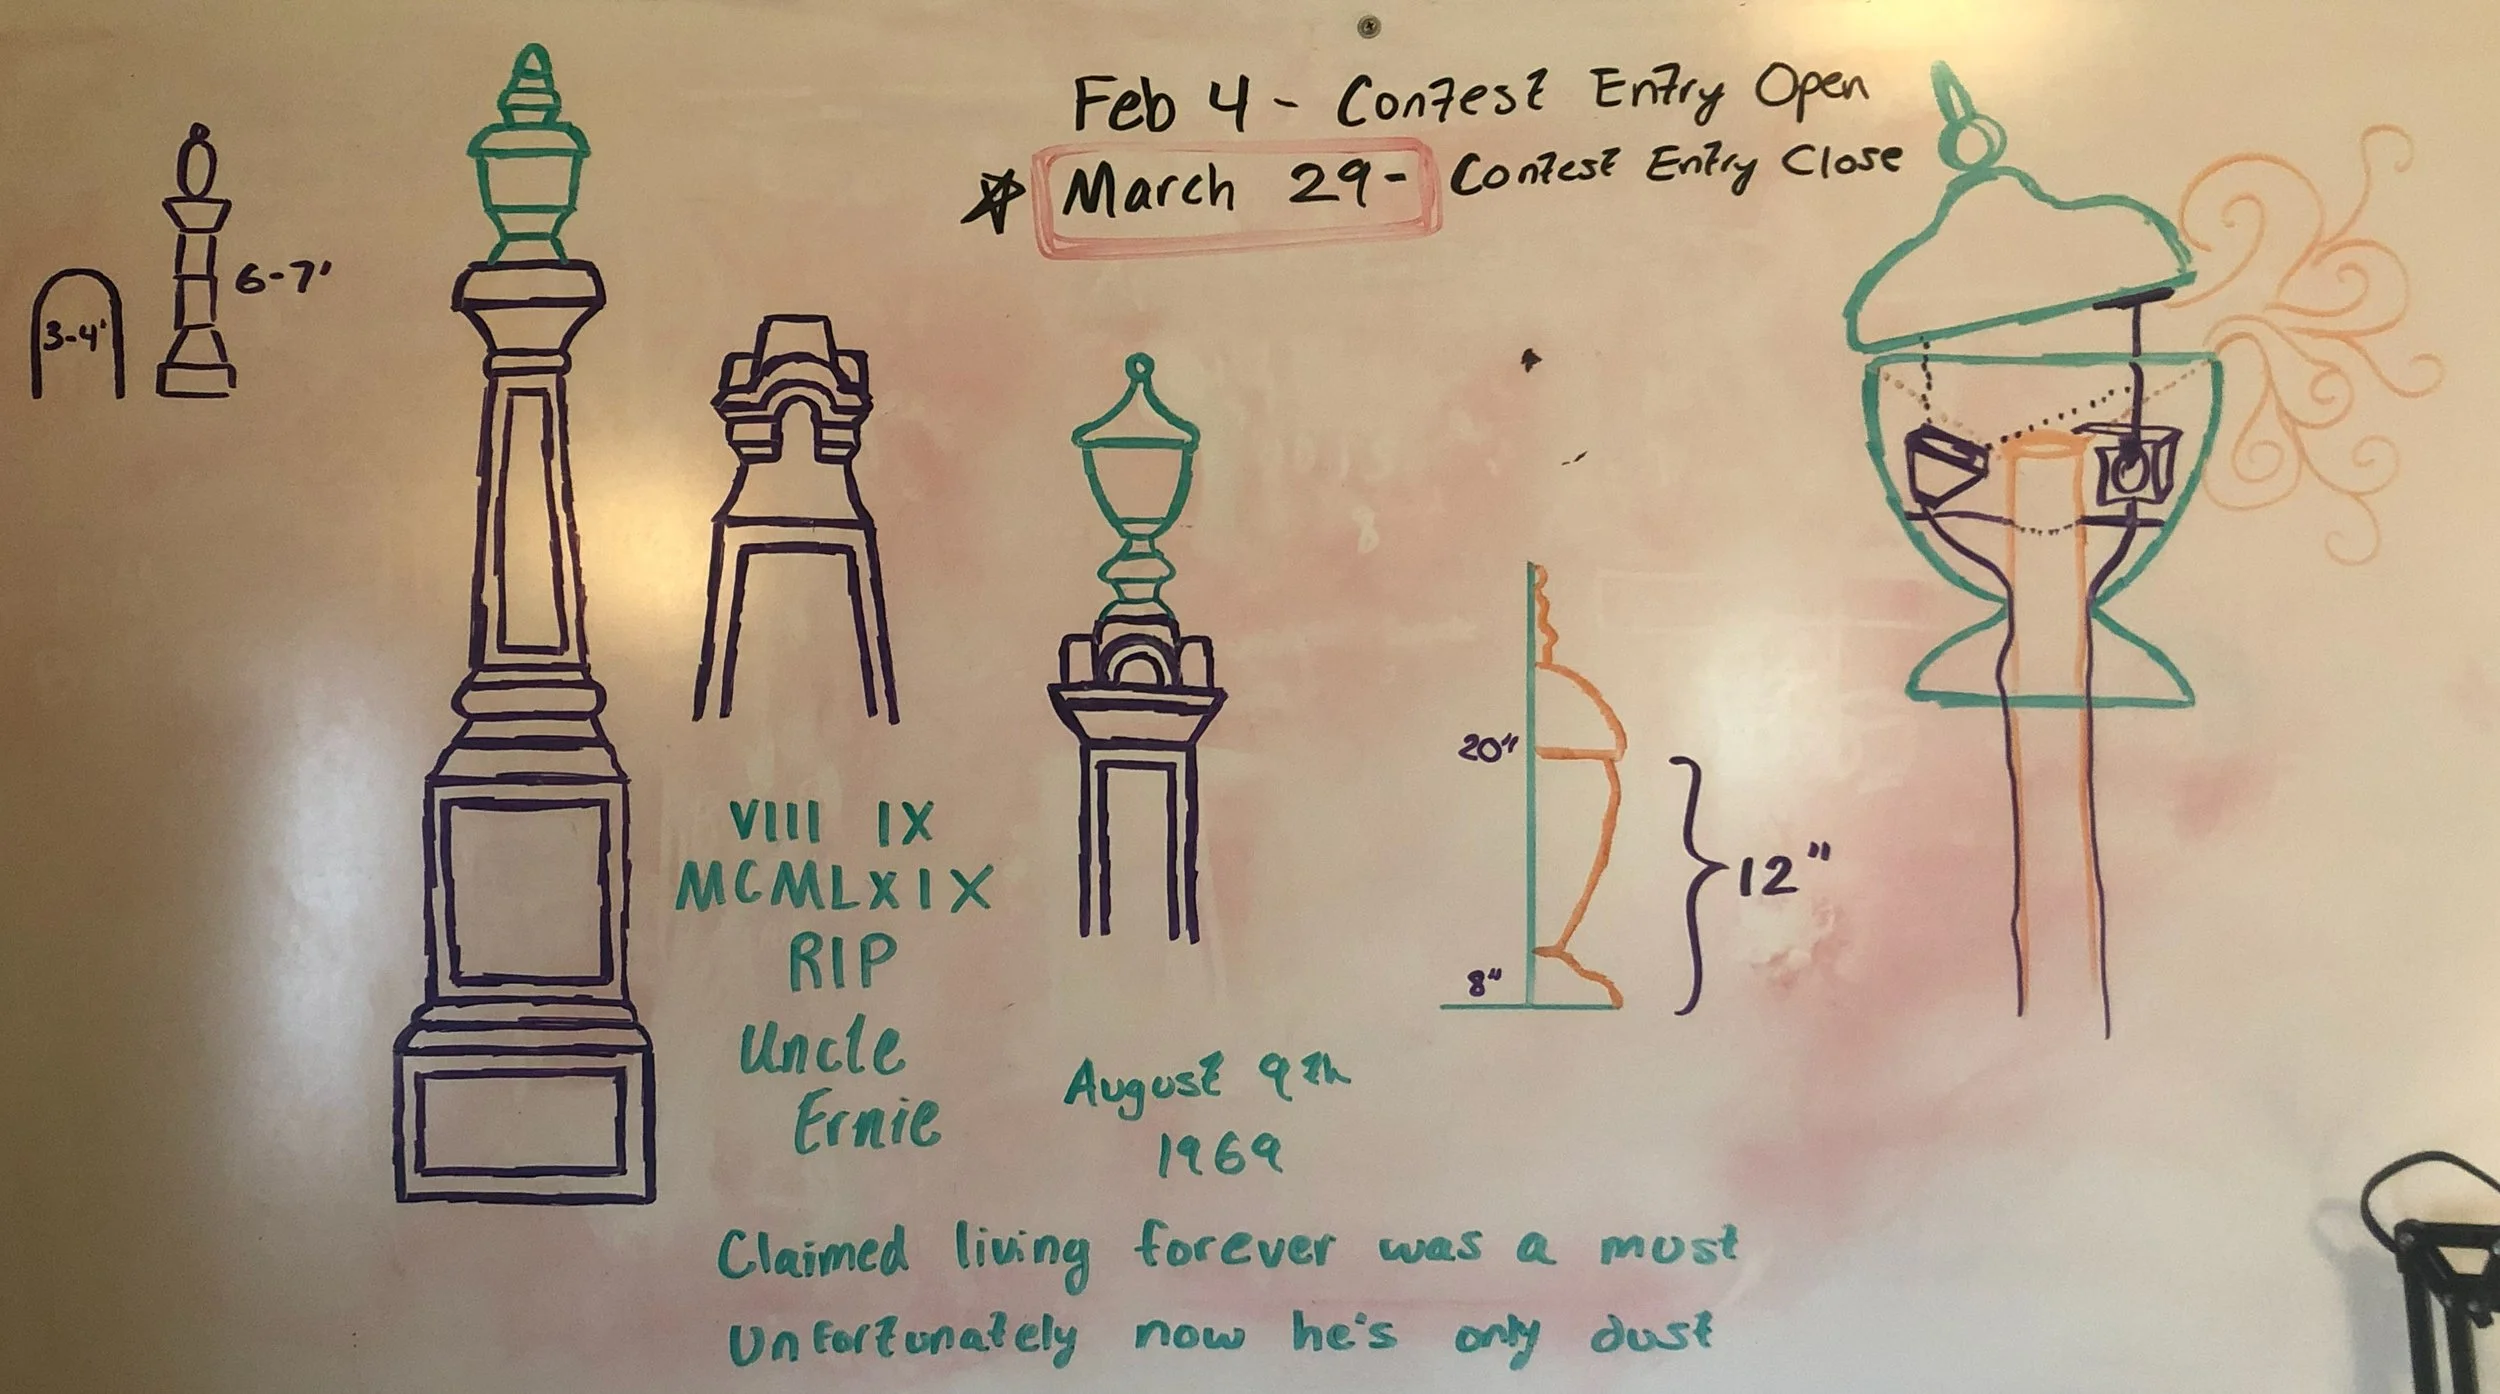 Feb 4 - Contest Entry Open
March 29 - Contest Entry Close
6-7'
3-4'
20"
12"
8"
VIII IX
MCMLXIX
RIP
Uncle
Ernie
August 9th
1969
Claimed living forever was a must
Unfortunately now he's only dust